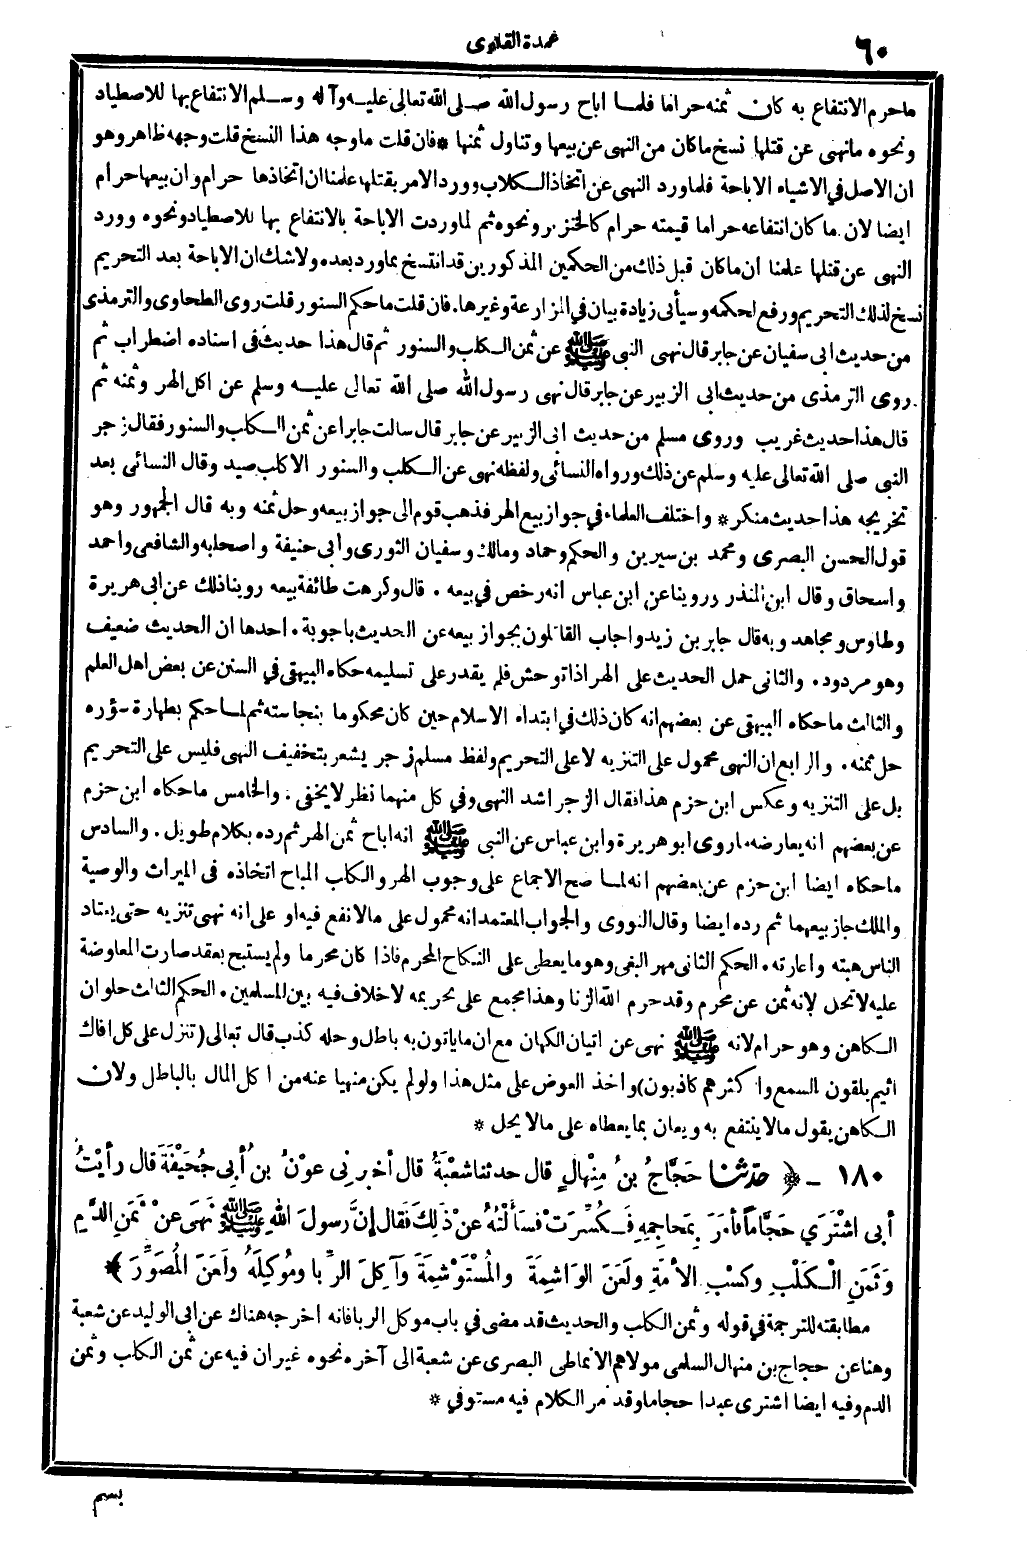 ٦٠
عمدة القاري
ماحرم الانتفاع به كان ثمنه حراما فلما اباح رسول الله صلى الله تعالى عليه وآله وسلم الانتفاع بها للاصطياد
ونحوه مانهى عن قتلها نسخ ماكان من النهى عن بيعها وتناول ثمنها * فان قلت ماوجه هذا النسخ قلت وجهه ظاهر وهو
ان الاصل في الاشياء الاباحة فلماورد النهى عن اتخاذ الكلاب وورد الامر بقتلها علمنا ان اتخاذها حرام وان بيعها حرام
ايضا لان ما كان انتفاعه حراما قيمته حرام كالخنزير ونحوه ثم لماوردت الاباحة بالانتفاع بها للاصطياد ونحوه وورد
النهى عن قتلها علمنا ان ماكان قبل ذلك من الحكمين المذكورين قد انتسخ بماورد بعده ولاشك ان الاباحة بعد التحريم
نسخ لذلك التحريم ورفع لحكمه وسيأتى زيادة بيان في المزارعة وغيرها . فان قلت ماحكم السنور قلت روى الطحاوى والترمذى
من حديث ابى سفيان عن جابر قال نهى النبى ﷺ عن ثمن الكلب والسنور ثم قال هذا حديث فى اسناده اضطراب ثم
روى الترمذى من حديث ابى الزبير عن جابر قال نهى رسول الله صلى الله تعالى عليه وسلم عن اكل الهر وثمنه ثم
قال هذا حديث غريب وروى مسلم من حديث ابى الزبير عن جابر قال سالت جابرا عن ثمن الكلب والسنور فقال زجر
النبى صلى الله تعالى عليه وسلم عن ذلك ورواه النسائى ولفظه نهى عن الكلب والسنور الا كلب صيد وقال النسائى بعد
تخريجه هذا حديث منكر * واختلف العلماء في جواز بيع الهر فذهب قوم الى جواز بيعه وحل ثمنه وبه قال الجمهور وهو
قول الحسن البصرى ومحمد بن سيرين والحكم وحماد ومالك وسفيان الثورى وأبى حنيفة واصحابه والشافعى واحمد
واسحاق وقال ابن المنذر وروينا عن ابن عباس انه رخص في بيعه . قال وكرهت طائفة بيعه روينا ذلك عن ابى هريرة
وطاوس ومجاهد وبه قال جابر بن زيد واجاب القائلون بجواز بيعه عن الحديث باجوبة . احدها ان الحديث ضعيف
وهو مردود . والثانى حمل الحديث على الهر اذا توحش فلم يقدر على تسليمه حكاه البيهقى في السنن عن بعض اهل العلم
والثالث ماحكاه البيهقى عن بعضهم انه كان ذلك في ابتداء الاسلام حين كان محكوما بنجاسته ثم لما حكم بطهارة سؤره
حل ثمنه . والرابع ان النهى محمول على التنزيه لا على التحريم ولفظ مسلم زجر يشعر بتخفيف النهى فليس على التحريم
بل على التنزيه وعكس ابن حزم هذا فقال الزجر اشد النهى وفي كل منهما نظر لا يخفى . والخامس ماحكاه ابن حزم
عن بعضهم انه يعارضه ماروى ابو هريرة وابن عباس عن النبى ﷺ انه اباح ثمن الهر ثم رده بكلام طويل . والسادس
ماحكاه ايضا ابن حزم عن بعضهم انه لما صح الاجماع على وجوب الهر والكلب المباح اتخاذه فى الميراث والوصية
والملك جاز بيعهما ثم رده ايضا وقال النووى والجواب المعتمد انه محمول على مالا نفع فيه او على انه نهى تنزيه حتى يعتاد
الناس هبته واعارته . الحكم الثانى مهر البغى وهو مايعطى على النكاح المحرم فاذا كان محرما ولم يستبح بعقد صارت المعاوضة
عليه لا تحل لانه ثمن عن محرم وقد حرم الله الزنا وهذا مجمع على تحريمه لا خلاف فيه بين المسلمين . الحكم الثالث حلوان
الكاهن وهو حرام لانه ﷺ نهى عن اتيان الكهان مع ان ماياتون به باطل وحله كذب قال تعالى (تنزل على كل افاك
اثيم يلقون السمع واكثرهم كاذبون) واخذ العوض على مثل هذا ولو لم يكن منهيا عنه من اكل المال بالباطل ولان
الكاهن يقول مالا ينتفع به ويعان بما يعطاه على مالا يحل *
١٨٠ - ﴿ حدثنا حَجَّاجُ بنُ مِنْهالٍ قال حدثنا شعْبَةُ قال أخبرنى عوْنُ بنُ أبى جُحَيْفَةَ قال رأيْتُ
أبى اشْتَرَي حَجَّاماً فأمَرَ بِمَحاجِمِهِ فَكُسِّرَتْ فسَأَلْتُهُ عنْ ذَلِكَ فقال إنَّ رسولَ اللهِ ﷺ نَهَى عنْ ثَمَنِ الدَّمِ
وَثَمَنِ الْكَلْبِ وكسْبِ الأمَةِ ولَعَنَ الوَاشِمَةَ والْمُسْتَوْشِمَةَ وآكِلَ الرِّبا ومُوكِلَهُ ولَعَنَ المُصَوِّرَ ﴾ *
مطابقته للترجمة في قوله وثمن الكلب والحديث قد مضى في باب موكل الربا فانه اخرجه هناك عن ابى الوليد عن شعبة
وهنا عن حجاج بن منهال السلمى مولاهم الانماطى البصرى عن شعبة الى آخره نحوه غير ان فيه عن ثمن الكلب وثمن
الدم وفيه ايضا اشترى عبدا حجاما وقد مر الكلام فيه مستوفي *
بسم